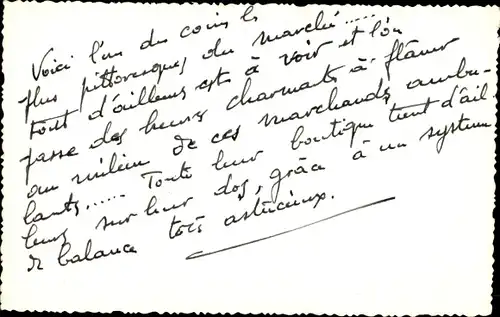 Voici l'un des coins les
plus pittoresques du marché.....
tout d'ailleurs est à voir et l'on
passe des heures charmantes à flâner
au milieu de ces marchands ambu-
lants...... Toute leur boutique tient d'ail-
leurs sur leur dos, grâce à un système
de balance très astucieux.